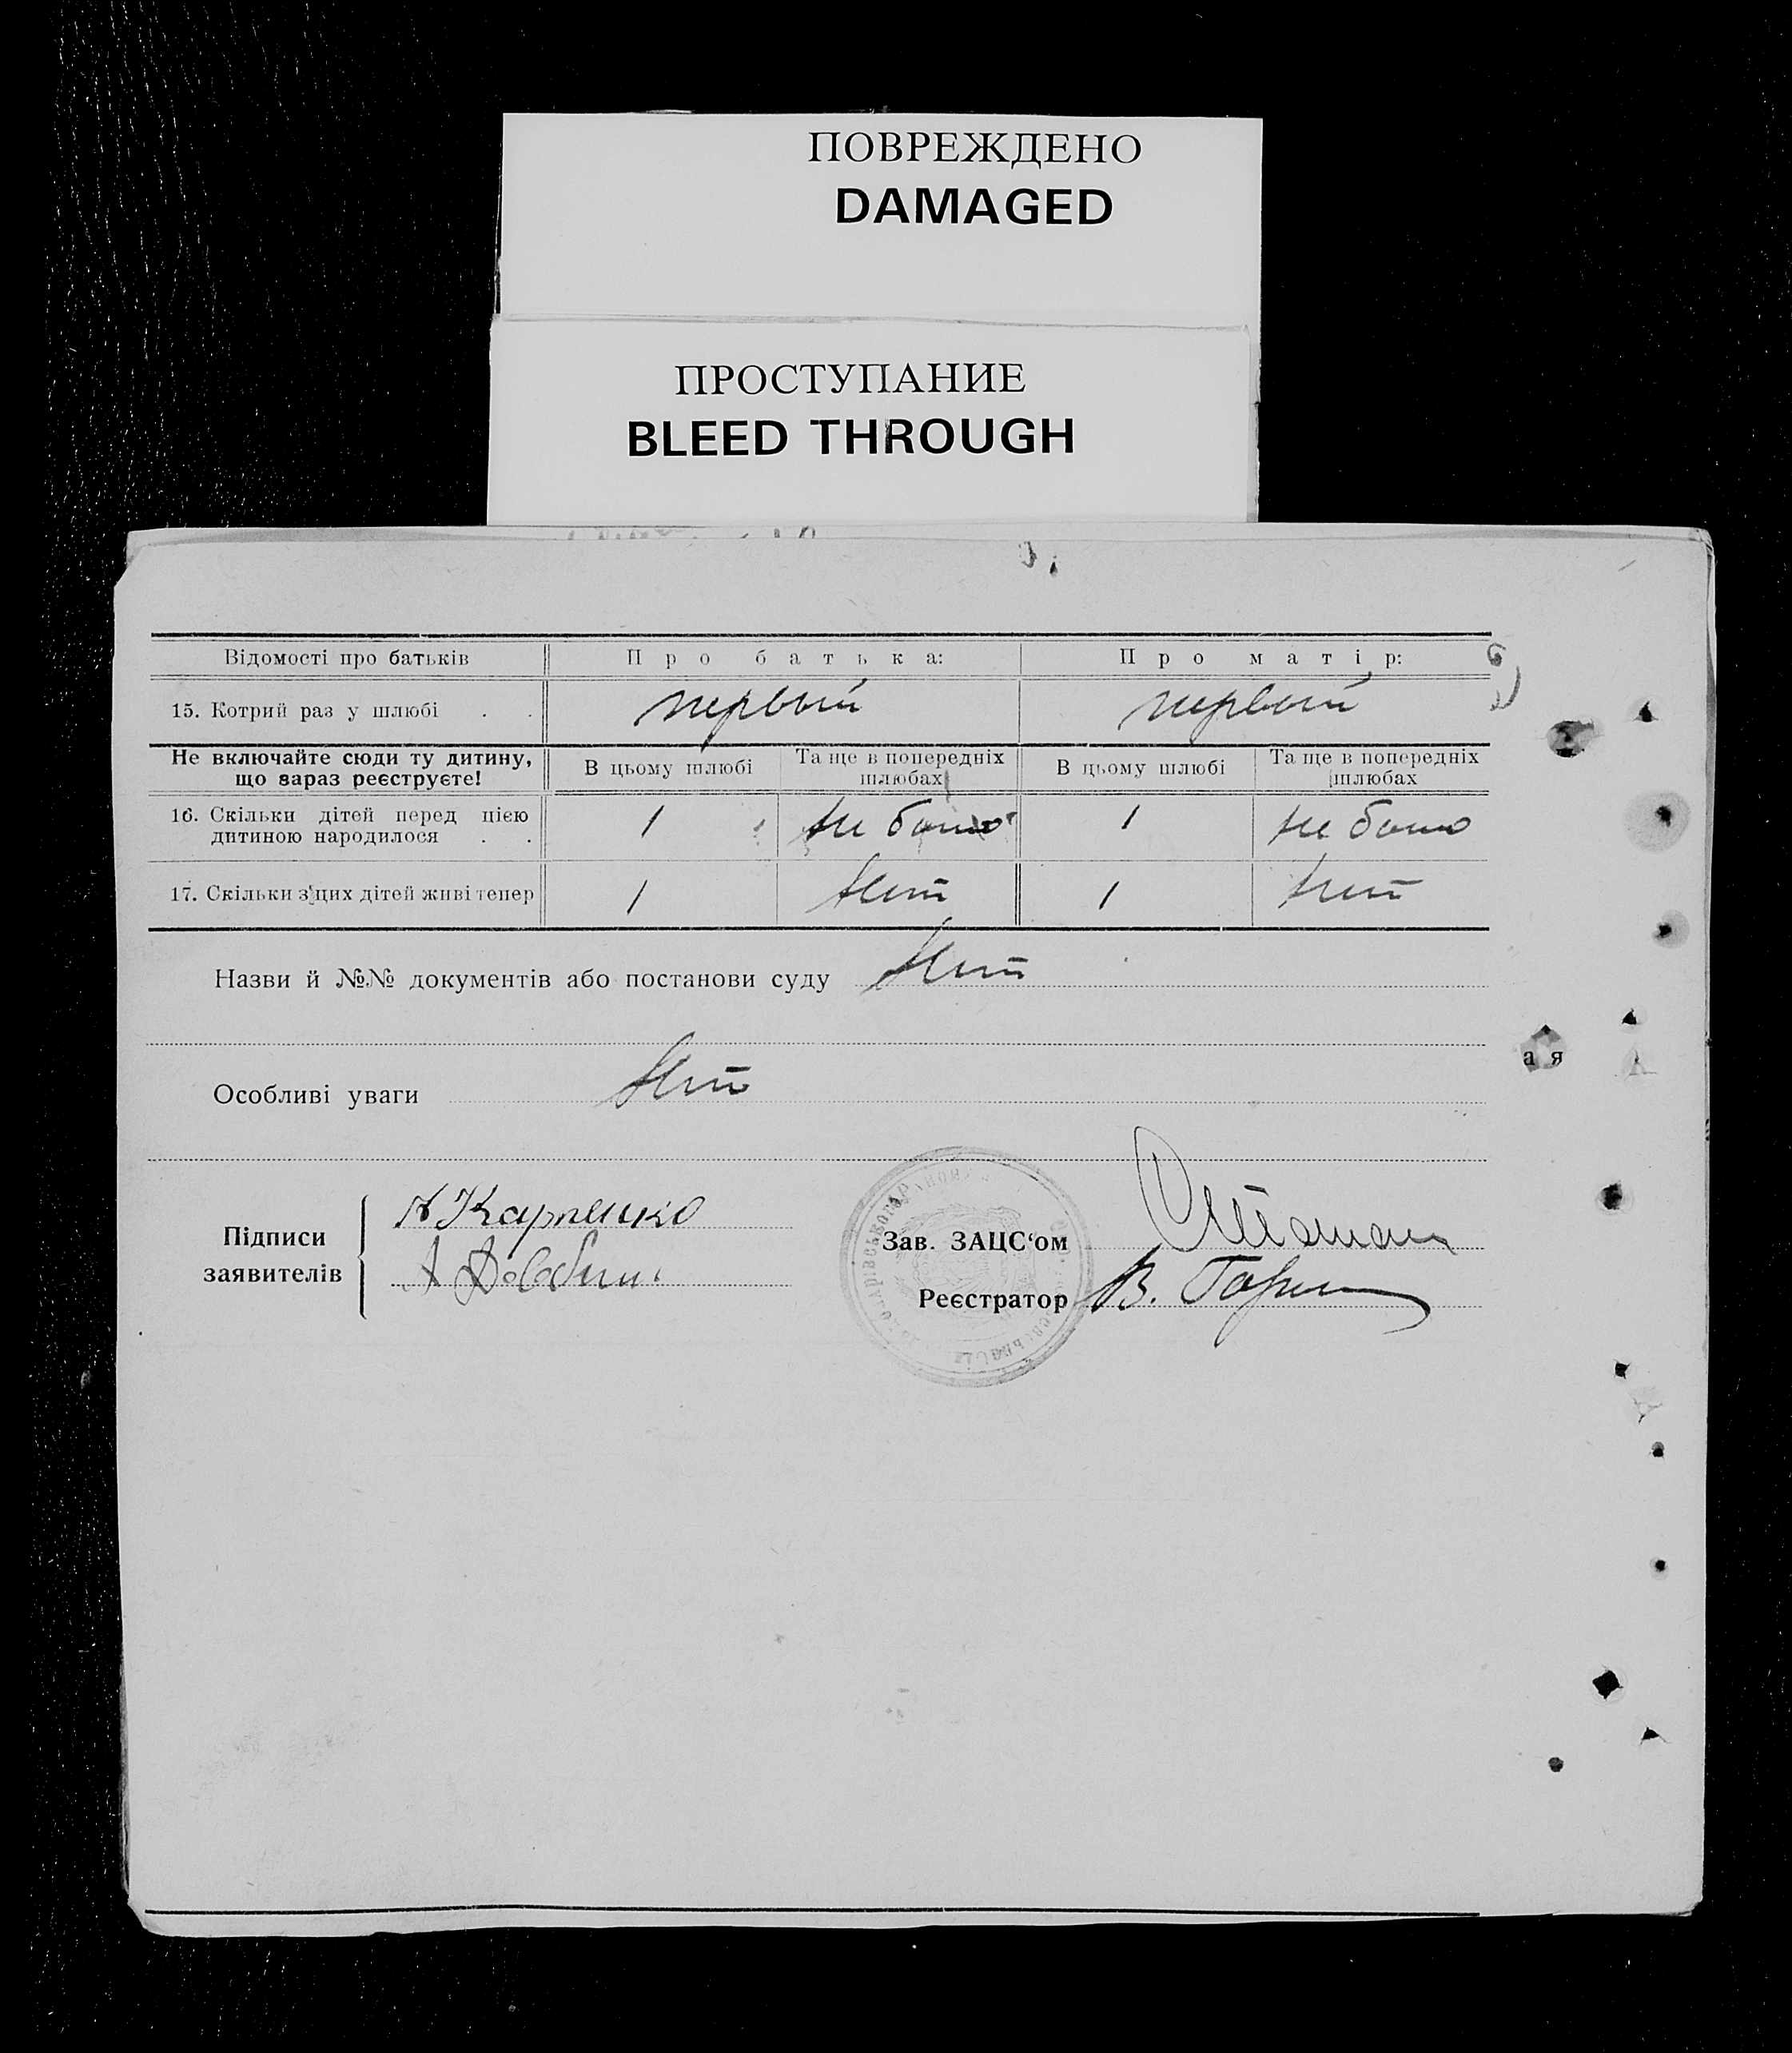 ПОВРЕЖДЕНО
DAMAGED
ПРОСТУПАНИЕ
BLEED THROUGH
Відомості про батьків Про батька: Про матір:
15. Котрий раз у шлюбі . . первый первый
Не включайте сюди ту дитину, що зараз реєструєте! В цьому шлюбі Та ще в попередніх шлюбах В цьому шлюбі Та ще в попередніх шлюбах
16. Скільки дітей перед цією дитиною народилося . . 1 не было 1 не было
17. Скільки з цих дітей живі тепер 1 Нет 1 Нет
Назви й №№ документів або постанови суду Нет
Особливі уваги Нет
ая
Підписи заявителів
Карпенко
Зав. ЗАЦС‘ом
Реєстратор В.